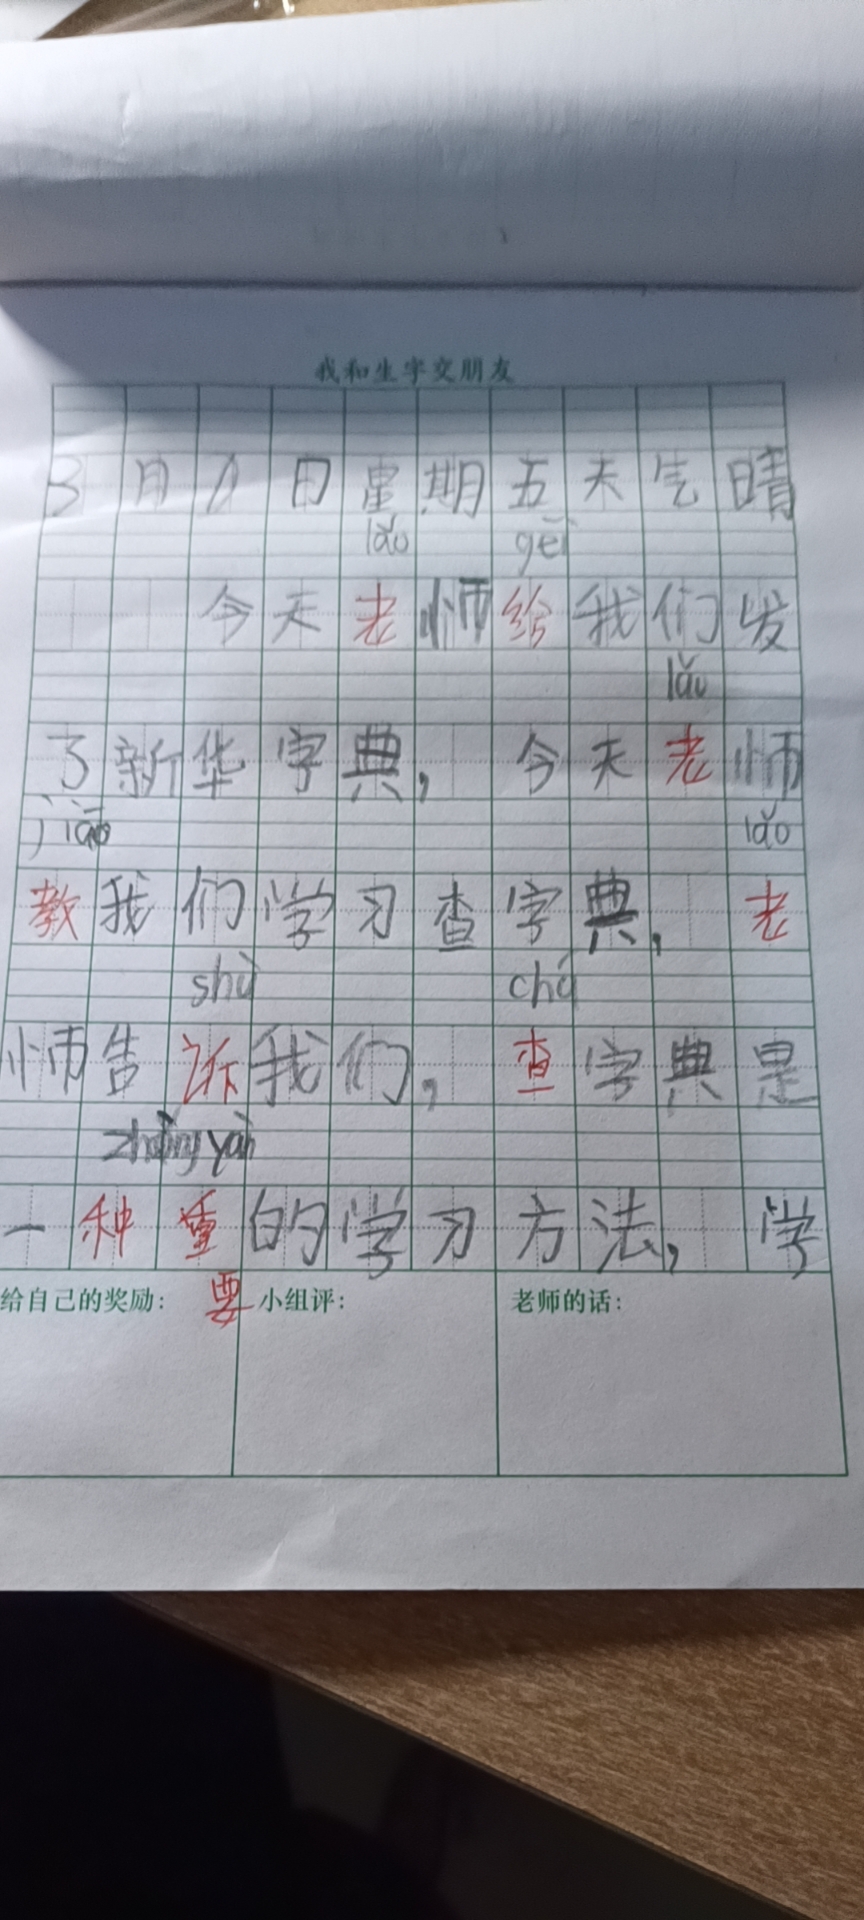 我和生字交朋友
3月日星期五天气晴
lǎo gěi
今天老师给我们发
lǎo
了新华字典，今天老师
jiāo lǎo
教我们学习查字典，老
shù chá
师告诉我们，查字典是
一种重的学习方法，学
给自己的奖励： 要 小组评： 老师的话：